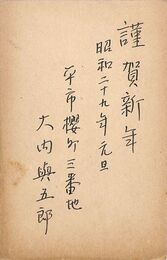 謹賀新年
昭和二十九年元旦
平市櫻ケ三番地
大内與五郎